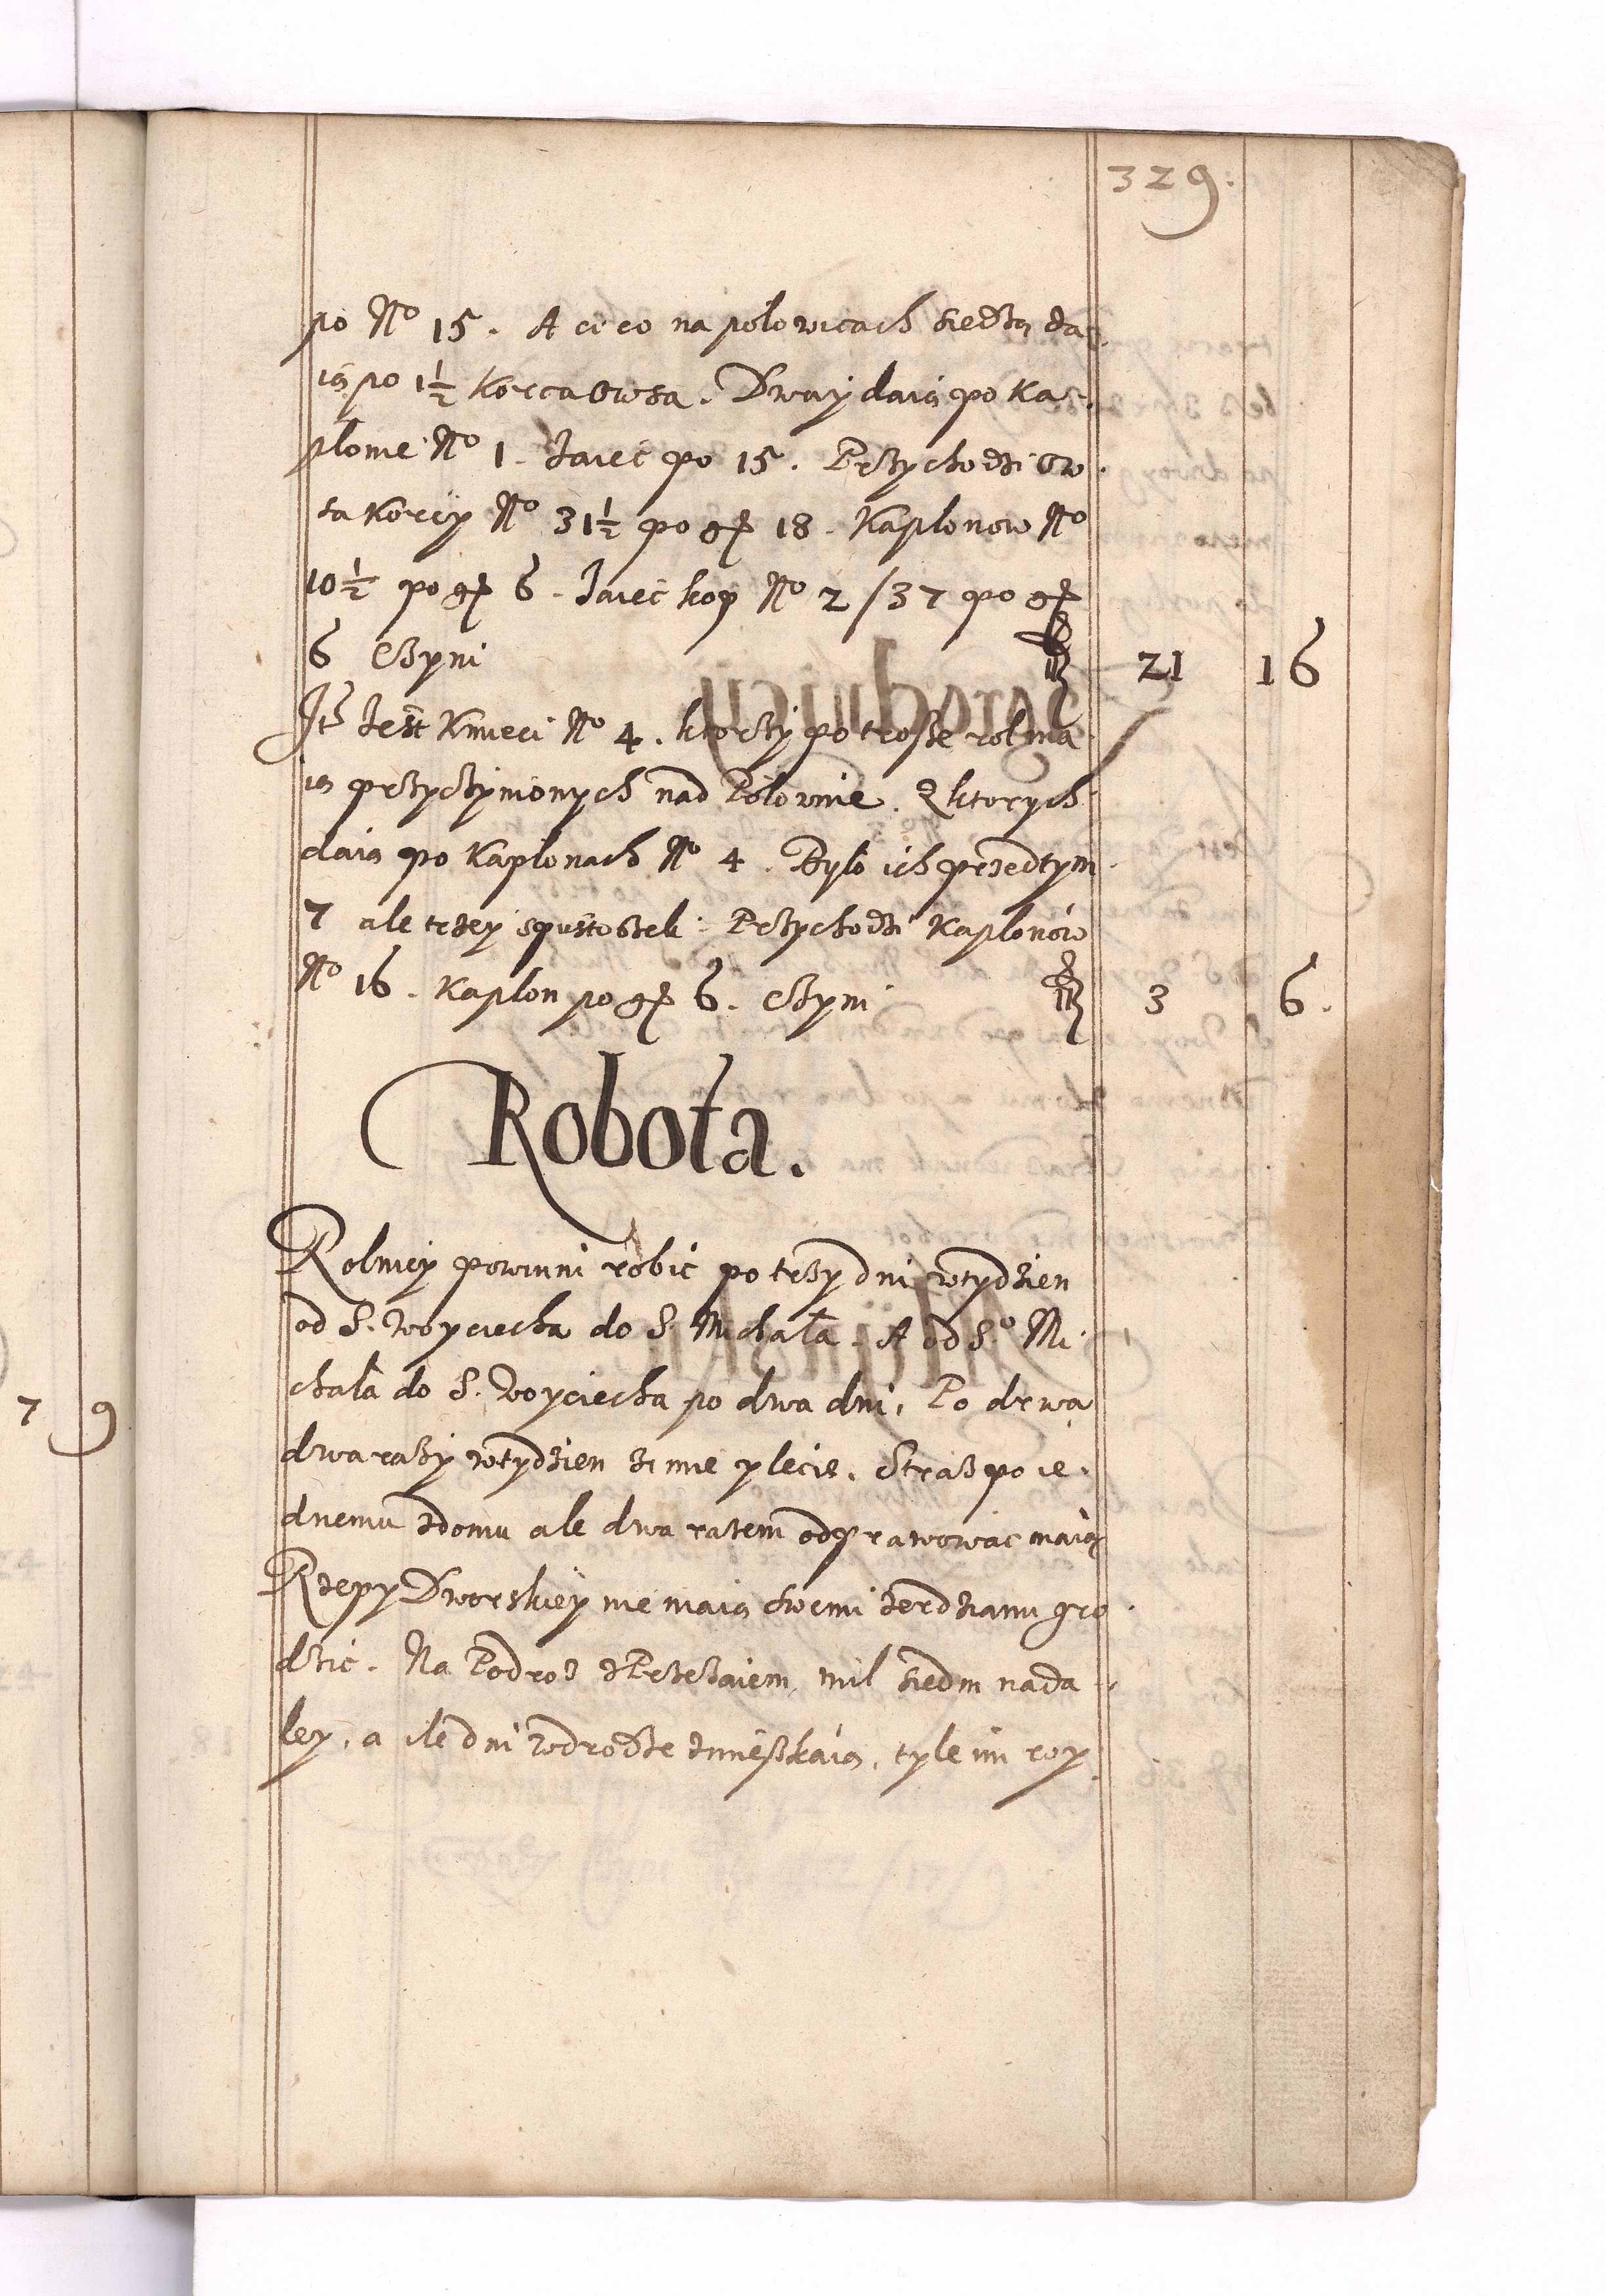 329.
po No 15. A ci co na polowicach siedzą da-
ią po 1½ Korca Owsa. Dway daią po Ka-
plonie No 1. Jaiec po 15. Przychodzi Ow-
sa Korcÿ No 31½ po gr 18. Kaplonow No
10½ po gr 6. Jaiec kop No 2/37 po gr
6 Czyni 21 16
Jest Kmieci No 4. ktorzÿ po trosze rol ma-
ią przyczynionych nad Polownie. Z ktorych
daią po Kaplonach No 4. Bylo ich przedtym
7 ale trzey spustoszeli. Przychodzi Kaplonów
No 16. Kaplon po gr 6. Czyni 3 6.
Robota.
Rolnicy powinni robic po trzy dni w tydzien
od S. Woyciecha do S. Michała. A od So Mi-
chała do S. Woyciecha po dwa dni. Po drwa
dwa razÿ w tydzien zimie y lecie. Straz po ie-
dnemu z domu ale dwa razem odprawowac maią
Rzepy Dworskieÿ nie maią swemi zerdziami gro-
dzic. Na Podroz z Przezaiem, mil siedm nada-
ley, a ile dni w drodze zmieszkaią, tyle im roy
7 9